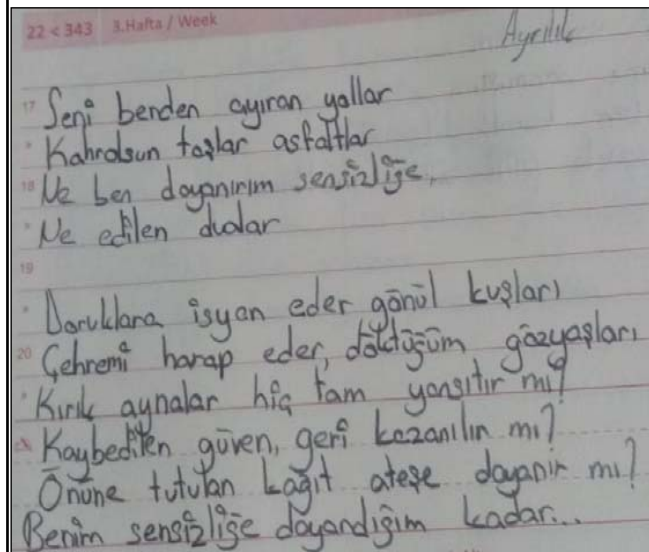 22 < 343 3.Hafta / Week
Ayrılık
17 Seni benden ayıran yollar
Kahrolsun taşlar asfaltlar
18 Ne ben dayanırım sensizliğe,
Ne edilen dualar
19
Doruklara isyan eder gönül kuşları
20 Çehremi harap eder, döktüğüm gözyaşları
Kırık aynalar hiç tam yansıtır mı?
Kaybedilen güven, geri kazanılır mı?
Önüne tutulan kağıt ateşe dayanır mı?
Benim sensizliğe dayandığım kadar...